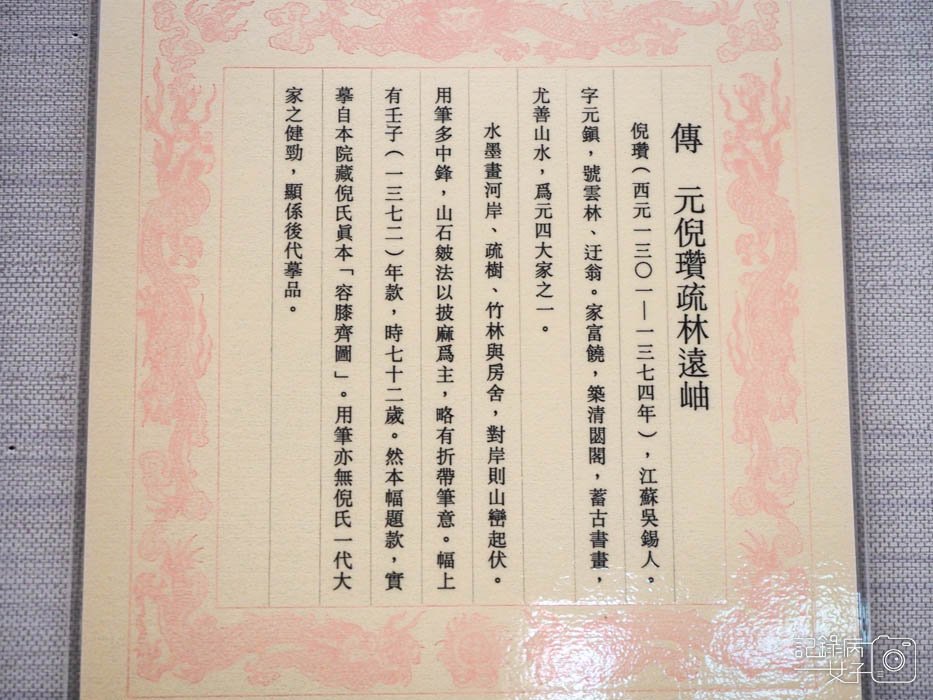 傳　元倪瓚疏林遠岫
倪瓚(西元一三〇一—一三七四年),江蘇吳錫人。
字元鎮,號雲林、迂翁。家富饒,築清閟閣,蓄古書畫,
尤善山水,爲元四大家之一。
水墨畫河岸、疏樹、竹林與房舍,對岸則山巒起伏。
用筆多中鋒,山石皴法以披麻爲主,略有折帶筆意。幅上
有壬子(一三七二)年款,時七十二歲。然本幅題款,實
摹自本院藏倪氏眞本「容膝齊圖」。用筆亦無倪氏一代大
家之健勁,顯係後代摹品。
記錄病女子